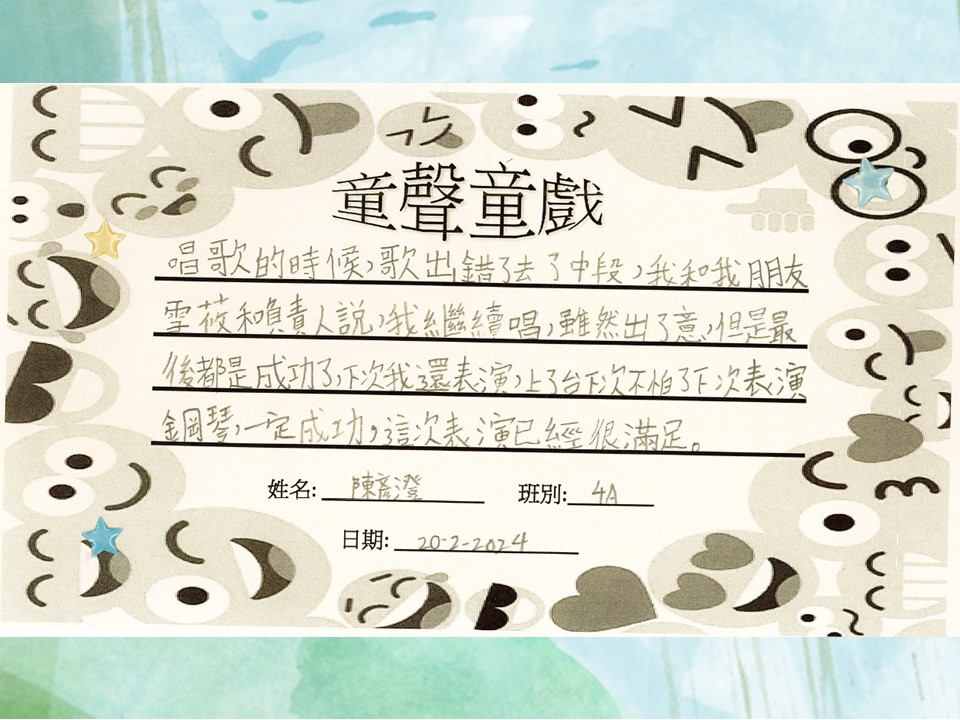 童聲童戲
唱歌的時候,歌出錯了去了中段,我和我朋友
雪莜和負責人說,我繼續唱,雖然出了意,但是最
後都是成功了,下次我還表演,上了台下次不怕了下次表演
鋼琴,一定成功,這次表演已經很滿足。
姓名: 陳彥澄 班別: 4A
日期: 20-2-2024